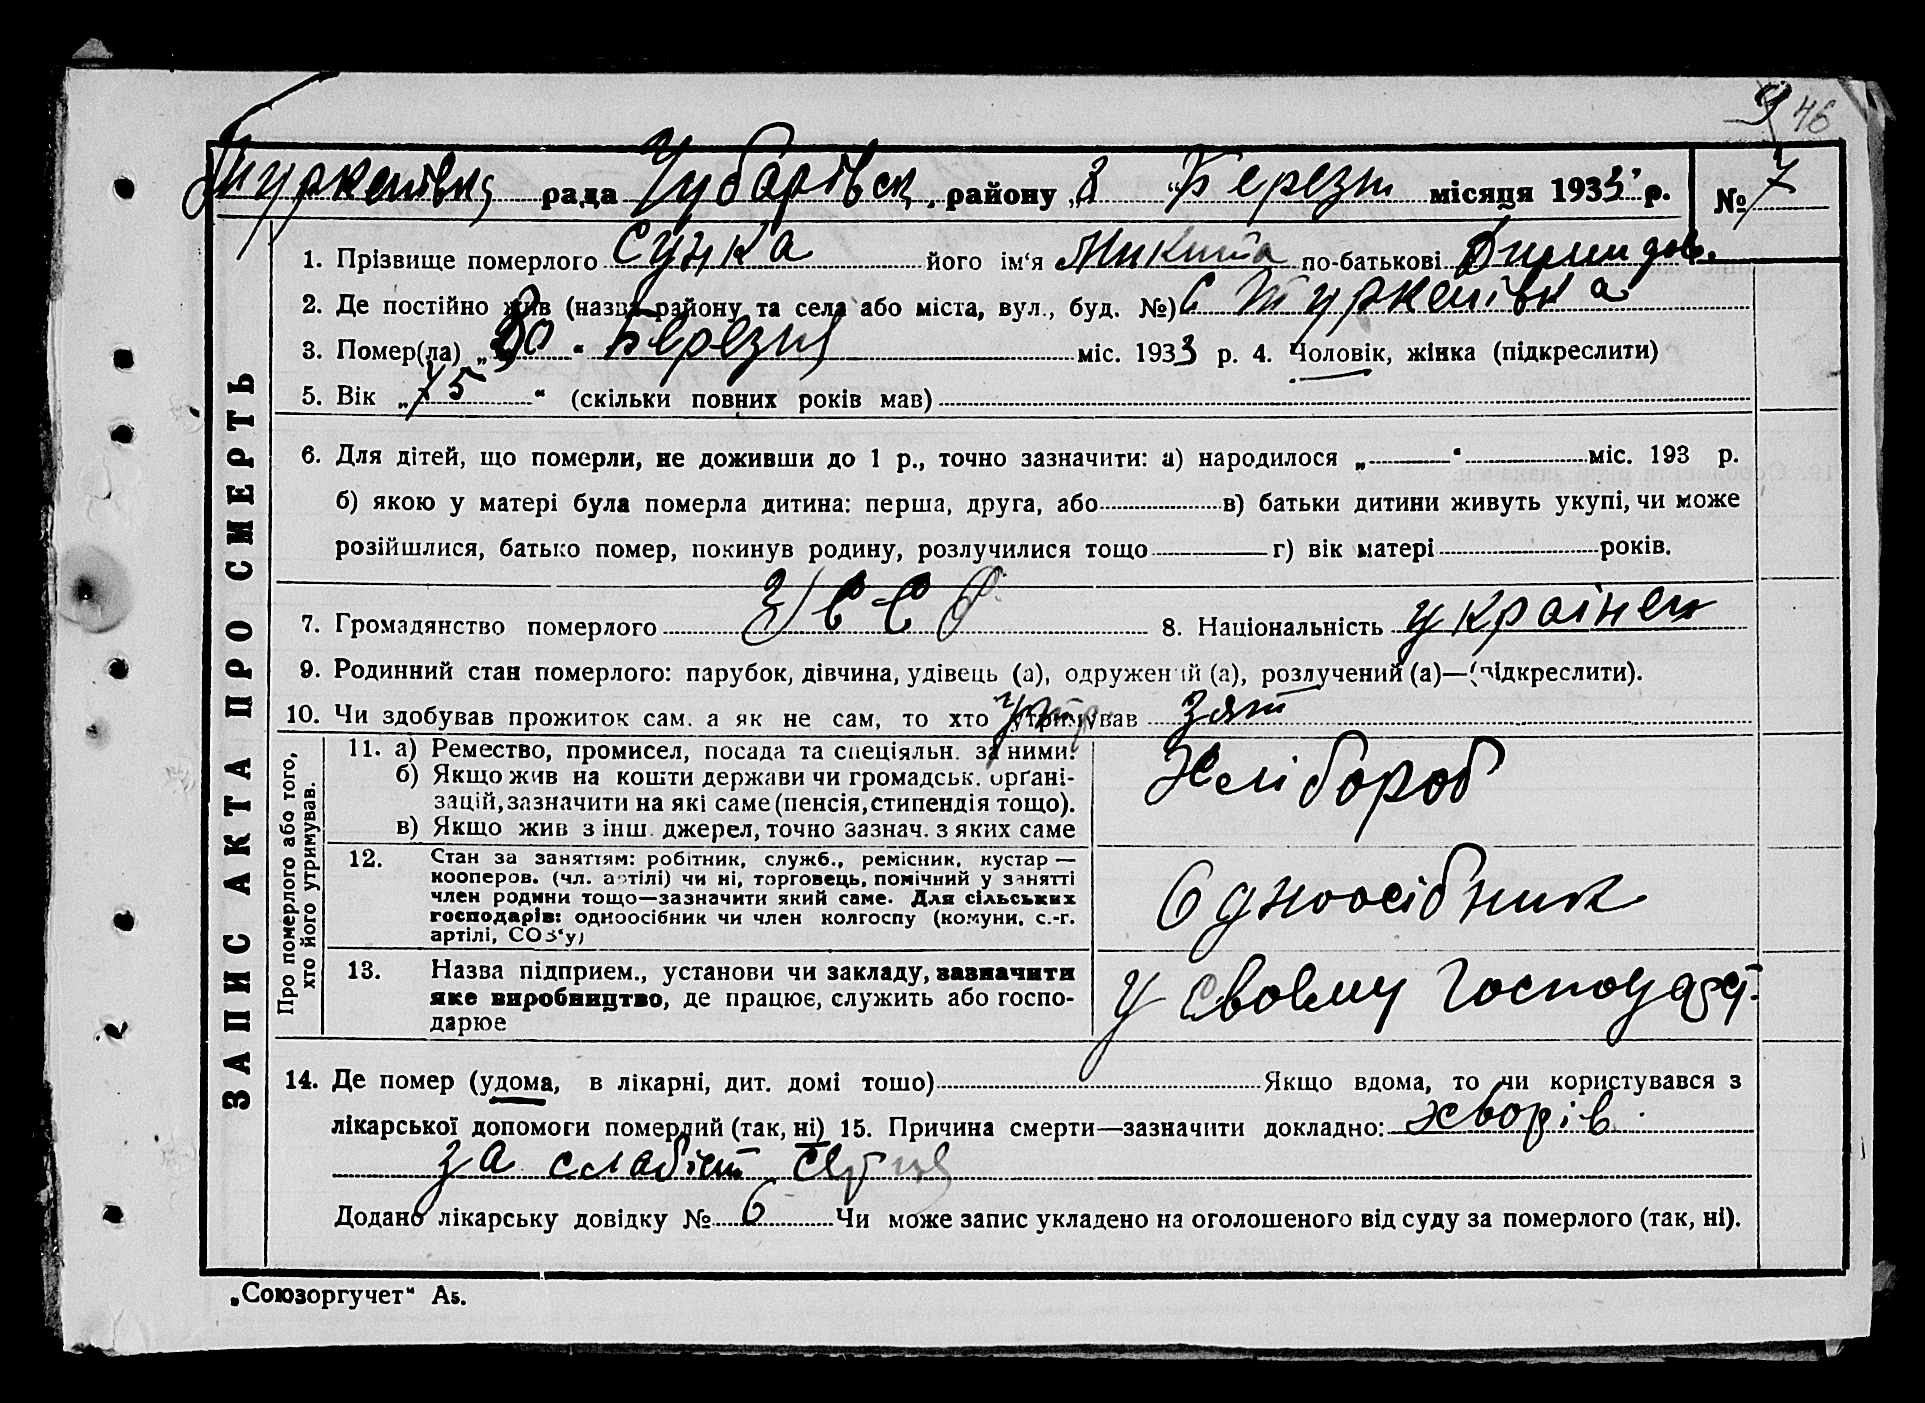 9 46
Туркенівка рада Чубарівск. району „8 “ Березня місяця 1933 р. № 7
ЗАПИС АКТА ПРО СМЕРТЬ
1. Прізвище померлого Сунка його ім‘я Микита по-батькові
2. Де постійно жив (назва району та села або міста, вул., буд. №) с Туркенівка
3. Помер(ла) „ “ Березня міс. 1933 р. 4. Чоловік, жінка (підкреслити)
5. Вік „75“ (скільки повних років мав)
6. Для дітей, що померли, не доживши до 1 р., точно зазначити: а) народилося „ “ міс. 193 р.
б) якою у матері була померла дитина: перша, друга, або в) батьки дитини живуть укупі, чи може
розійшлися, батько помер, покинув родину, розлучилися тощо г) вік матері років.
7. Громадянство померлого УССР 8. Національність украінец
9. Родинний стан померлого: парубок, дівчина, удівець (а), одружений (а), розлучений (а)—(підкреслити).
10. Чи здобував прожиток сам, а як не сам, то хто утримував зят
Про померлого або того,
хто його утримував.
11. а) Ремество, промисел, посада та спеціяльн. за ними:
б) Якщо жив на кошти держави чи громадськ. орґані-
зацій, зазначити на які саме (пенсія, стипендія тощо).
в) Якщо жив з інш. джерел, точно зазнач. з яких саме
Хлібороб
12. Стан за заняттям: робітник, служб., ремісник, кустар —
кооперов. (чл. артілі) чи ні, торговець, помічний у занятті
член родини тощо—зазначити який саме. Для сільських
господарів: одноосібник чи член колгоспу (комуни, с.-г.
артілі, СОЗ‘у)
Одноосібник
13. Назва підприєм., установи чи закладу, зазначити
яке виробництво, де працює, служить або госпо-
дарює
у своєму господарст.
14. Де помер (удома, в лікарні, дит. домі тощо) Якщо вдома, то чи користувався з
лікарської допомоги померлий (так, ні) 15. Причина смерти—зазначити докладно: хворів
за слабіст серця
Додано лікарську довідку № 6 Чи може запис укладено на оголошеного від суду за померлого (так, ні).
„Союзоргучет“ А5.